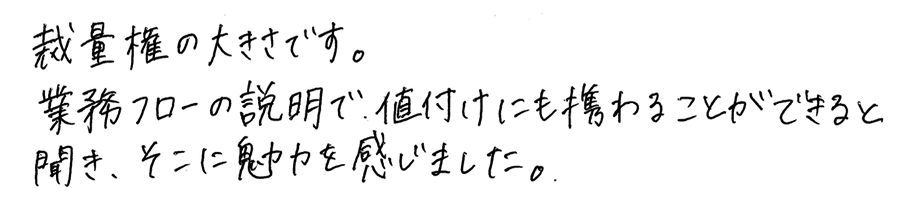 裁量権の大きさです。
業務フローの説明で、値付けにも携わることができると
聞き、そこに魅力を感じました。